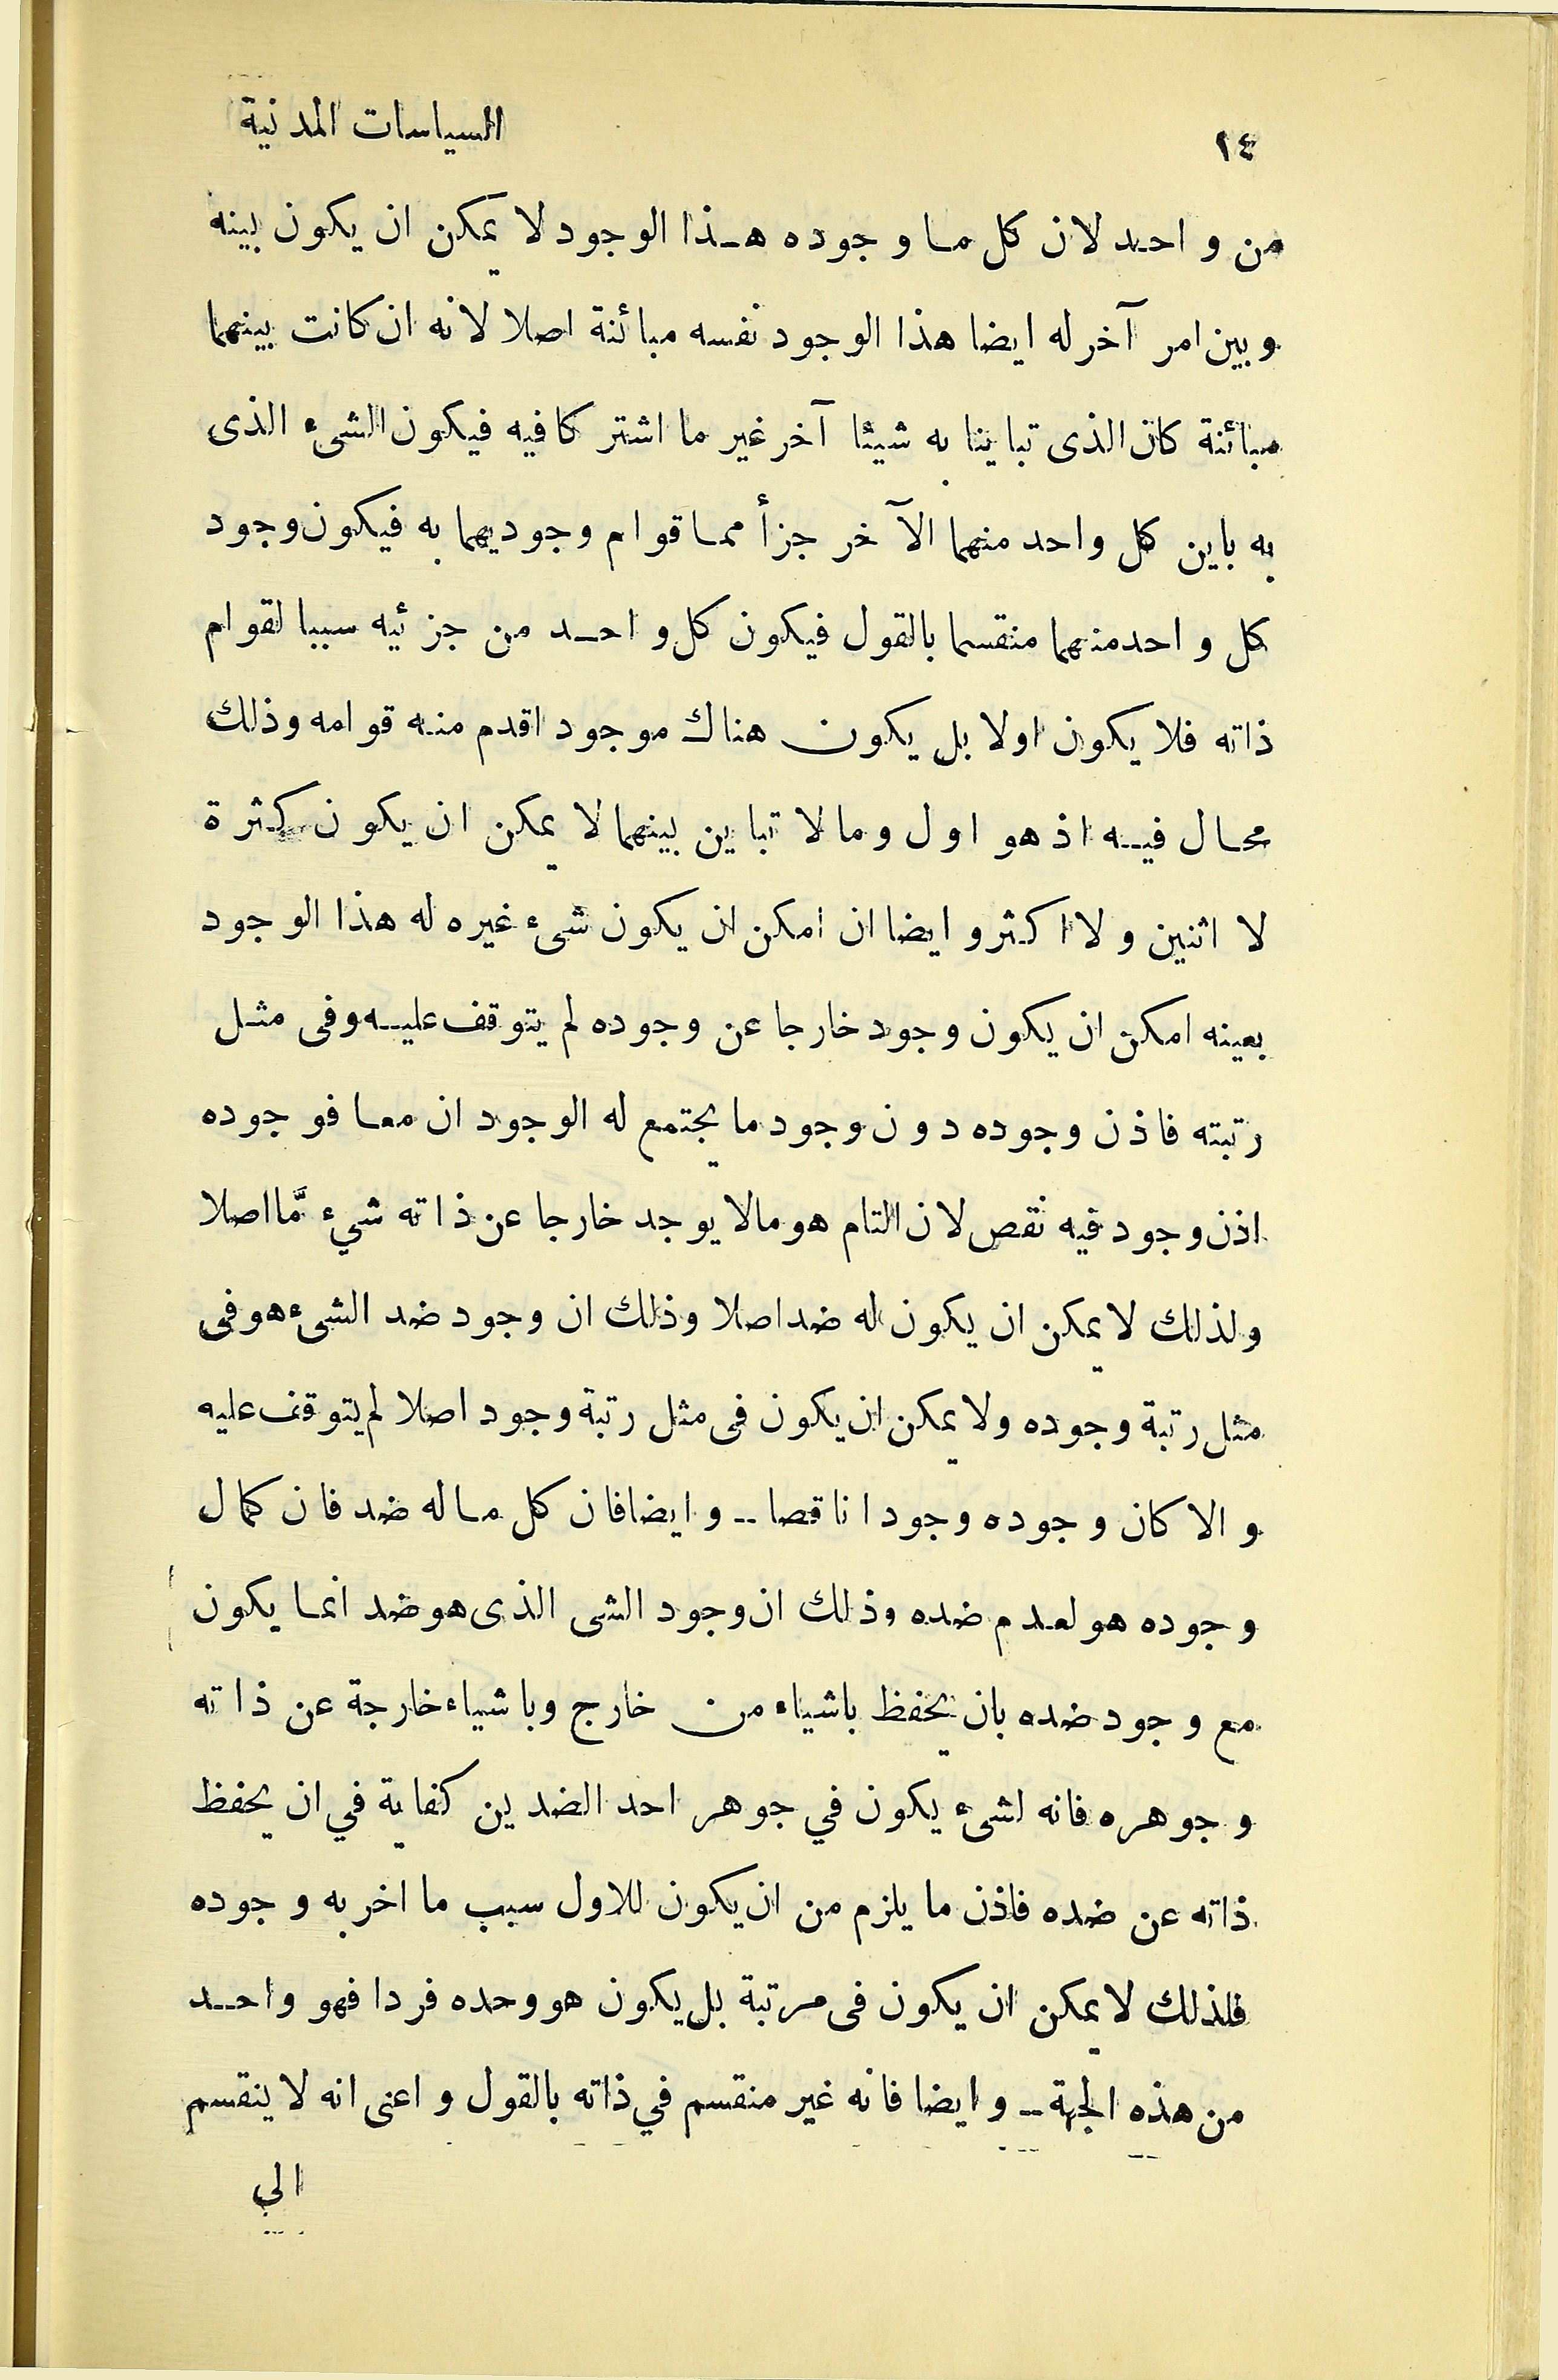 ١٤
السياسات المدنية
من واحد لان كل ما وجوده هذا الوجود لا يمكن ان يكون بينه
وبين امر آخر له ايضا هذا الوجود نفسه مبائنة اصلا لانه ان كانت بينهما
مبائنة كان الذى تباينا به شيئا آخر غير ما اشتركا فيه فيكون الشىء الذى
به باين كل واحد منهما الآخر جزأ مما قوام وجوديهما به فيكون وجود
كل واحد منهما منقسما بالقول فيكون كل واحد من جزئيه سببا لقوام
ذاته فلا يكون اولا بل يكون هناك موجود اقدم منه قوامه وذلك
محال فيه اذ هو اول وما لا تباين بينهما لا يمكن ان يكون كثرة
لا اثنين ولا اكثر وايضا ان امكن ان يكون شىء غيره له هذا الوجود
بعينه امكن ان يكون وجود خارجا عن وجوده لم يتوقف عليه وفى مثل
رتبته فاذن وجوده دون وجود ما يجتمع له الوجود ان معا فوجوده
اذن وجود فيه نقص لان التام هو مالا يوجد خارجا عن ذاته شيء مّا اصلا
ولذلك لا يمكن ان يكون له ضد اصلا وذلك ان وجود ضد الشىء هو فى
مثل رتبة وجوده ولا يمكن ان يكون فى مثل رتبة وجود اصلا لم يتوقف عليه
والا كان وجوده وجودا ناقصا -- وايضا فان كل ما له ضد فان كمال
وجوده هو لعدم ضده وذلك ان وجود الشى الذى هو ضد انما يكون
مع وجود ضده بان يحفظ باشياء من خارج وباشياء خارجة عن ذاته
وجوهره فانه لشىء يكون في جوهر احد الضدين كفاية في ان يحفظ
ذاته عن ضده فاذن ما يلزم من ان يكون للاول سبب ما اخر به وجوده
فلذلك لا يمكن ان يكون فى مرتبة بل يكون هو وحده فردا فهو واحد
من هذه الجهة -- وايضا فانه غير منقسم في ذاته بالقول واعنى انه لا ينقسم
الي